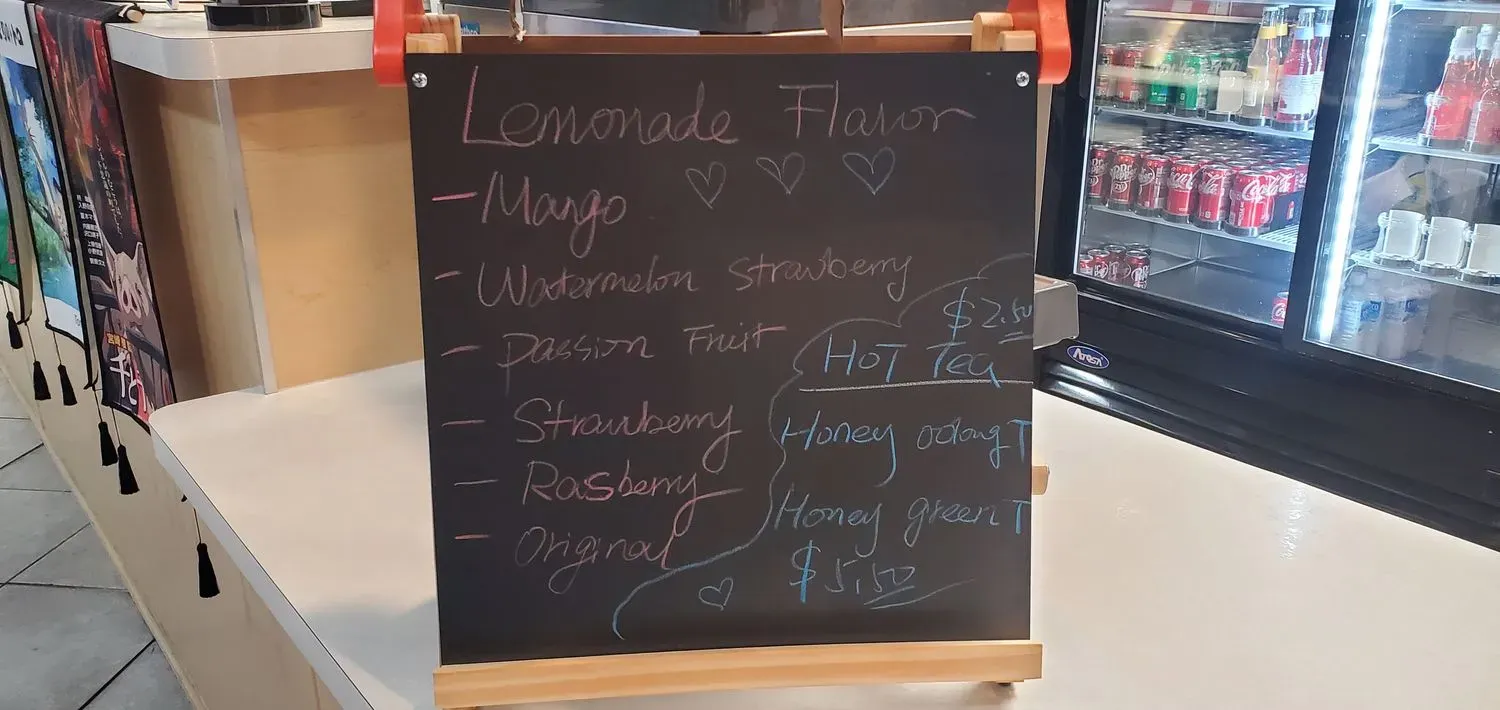 Lemonade Flavor
- Mango
- Watermelon Strawberry
- Passion Fruit
- Strawberry
- Rasberry
- Original
$2.50
HOT Tea
Honey oolong T
Honey green T
$5.50
Coca-Cola
Coca-Cola
Atosa
千と